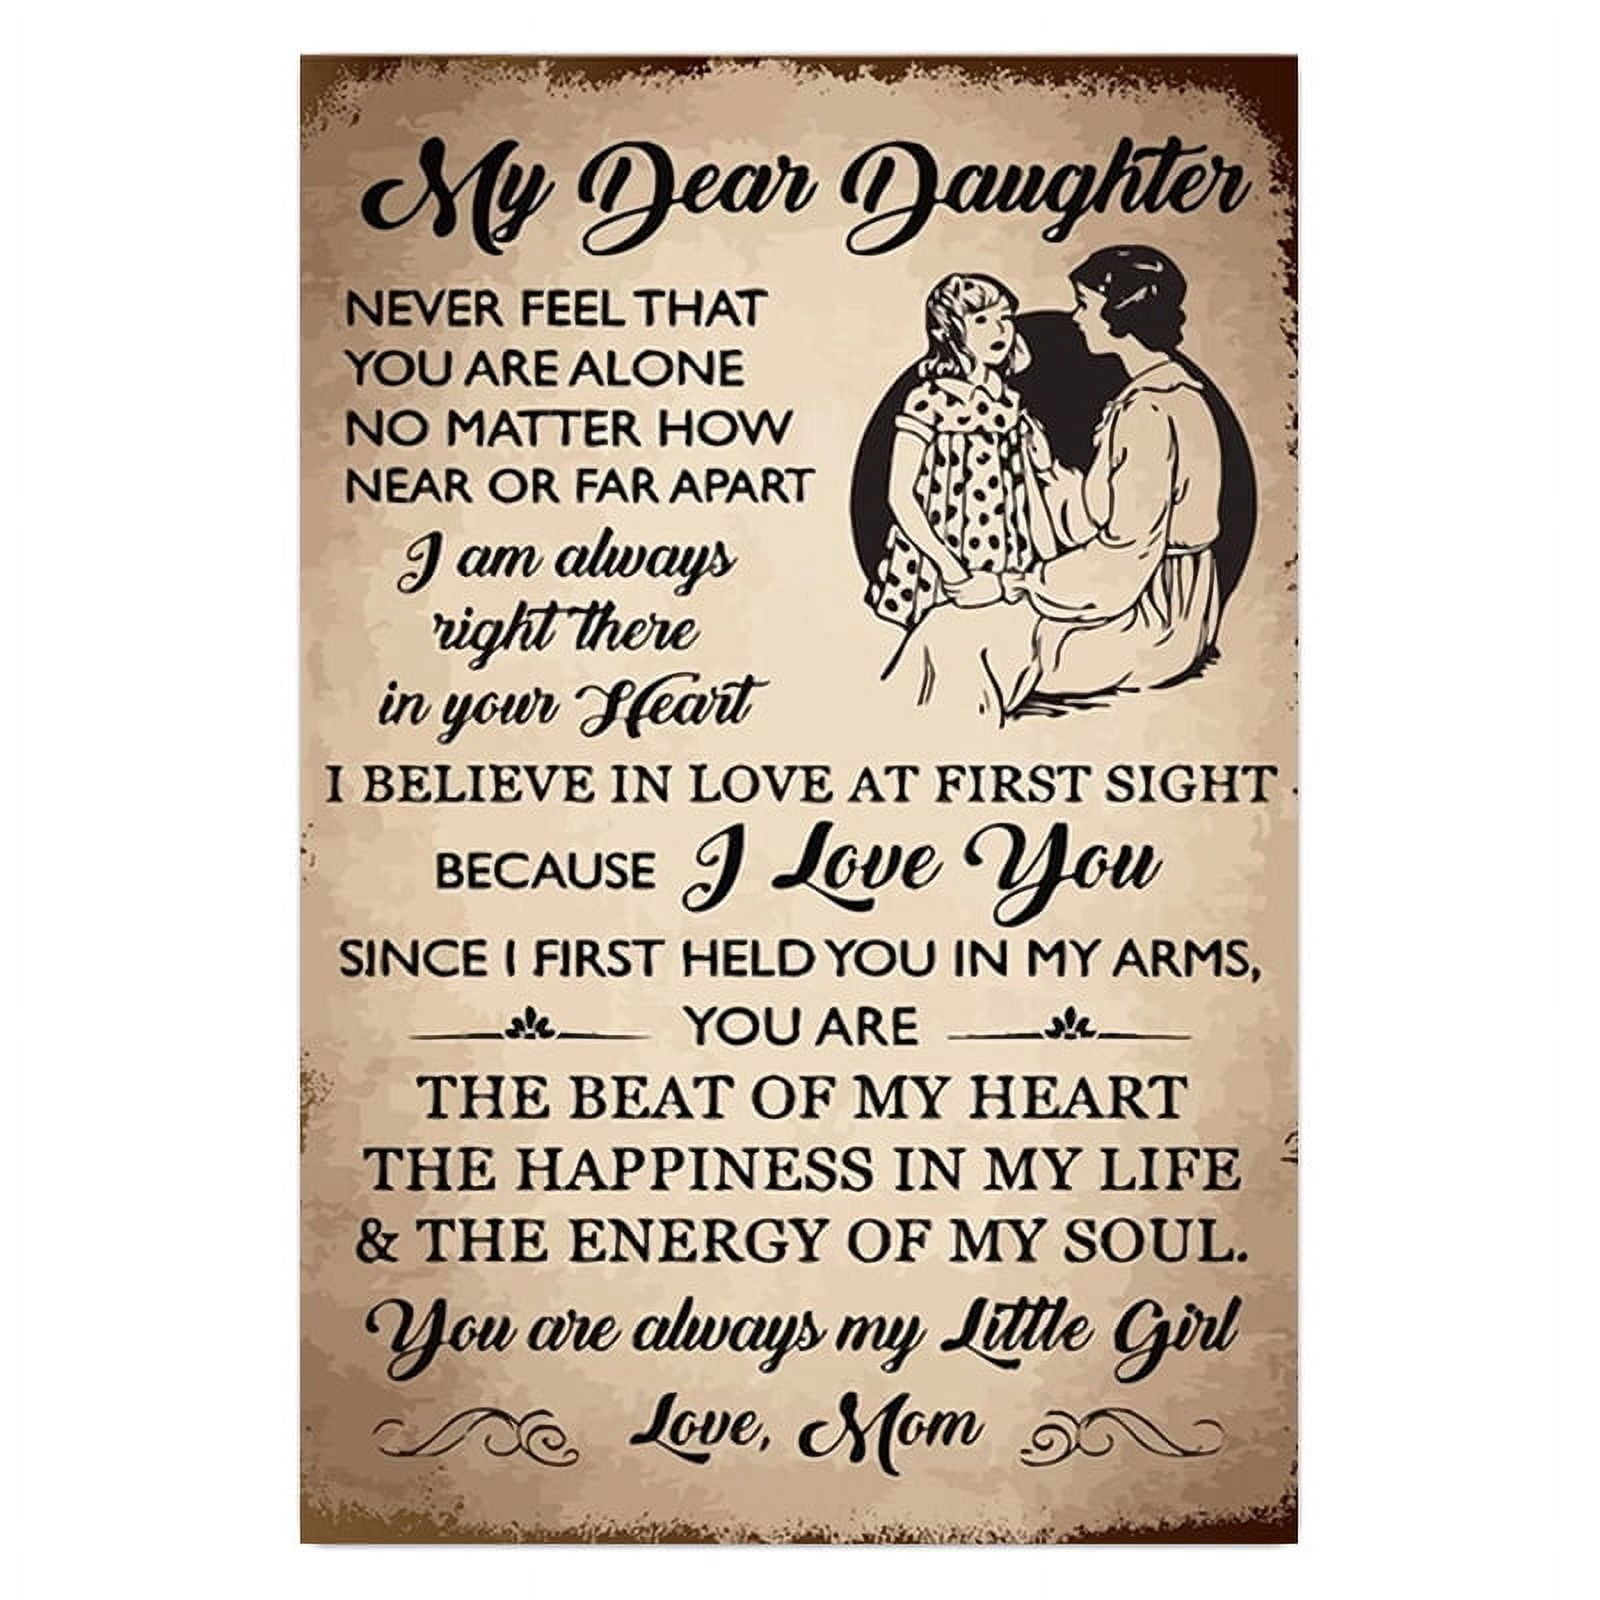 My Dear Daughter
NEVER FEEL THAT
YOU ARE ALONE
NO MATTER HOW
NEAR OR FAR APART
I am always
right there
in your Heart
I BELIEVE IN LOVE AT FIRST SIGHT
BECAUSE I Love You
SINCE I FIRST HELD YOU IN MY ARMS,
YOU ARE
THE BEAT OF MY HEART
THE HAPPINESS IN MY LIFE
& THE ENERGY OF MY SOUL.
You are always my Little Girl
Love, Mom